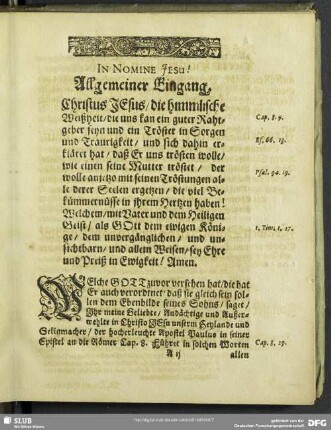 IN NOMINE JESU!
Allgemeiner Eingang.
Christus JEsus/ die himmlische
Weißheit/ die uns kan ein guter Raht-
geber seyn und ein Tröster in Sorgen
und Traurigkeit/ und sich dahin er-
kläret hat/ daß Er uns trösten wolle/
wie einen seine Mutter tröstet/ der
wolle anjetzo mit seinen Tröstungen al-
le derer Seelen ergetzen/ die viel Be-
kümmernüsse in ihrem Hertzen haben!
Welchem/ mit Vater und dem Heiligen
Geist/ als GOtt dem ewigen Köni-
ge/ dem unvergänglichen/ und un-
sichtbarn/ und allein Weisen/ sey Ehre
und Preiß in Ewigkeit! Amen.
Cap. 8. 9.
Es. 66. 13.
Psal. 94. 19.
1. Tim. 1. 17.
Welche GOTT zuvor versehen hat/ die hat
Er auch verordnet/ daß sie gleich seyn sol-
len dem Ebenbilde seines Sohns/ saget/
Ihr meine Geliebte/ Andächtige und Außer-
wehlte in Christo JEsu unserm Heylande und
Seligmacher/ der hocherleuchte Apostel Paulus in seiner
Epistel an die Römer Cap. 8. Führet in solchen Worten
Cap. 8, 29.
A ij
allen
SLUB
Wir führen Wissen.
http://digital.slub-dresden.de/
gefördert von der
Deutschen Forschungsgemeinschaft
DFG